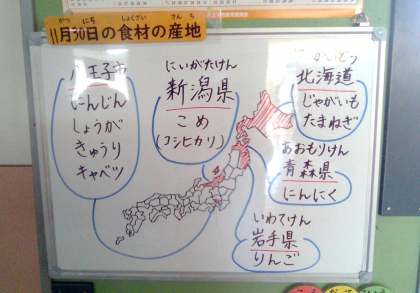 がつ にち しょくざい さんち
11月30日の食材の産地
八王子市
にんじん
しょうが
きゅうり
キャベツ
にいがたけん
新潟県
こめ
(コシヒカリ)
北海道
じゃがいも
たまねぎ
あおもりけん
青森県
にんにく
いわてけん
岩手県
りんご